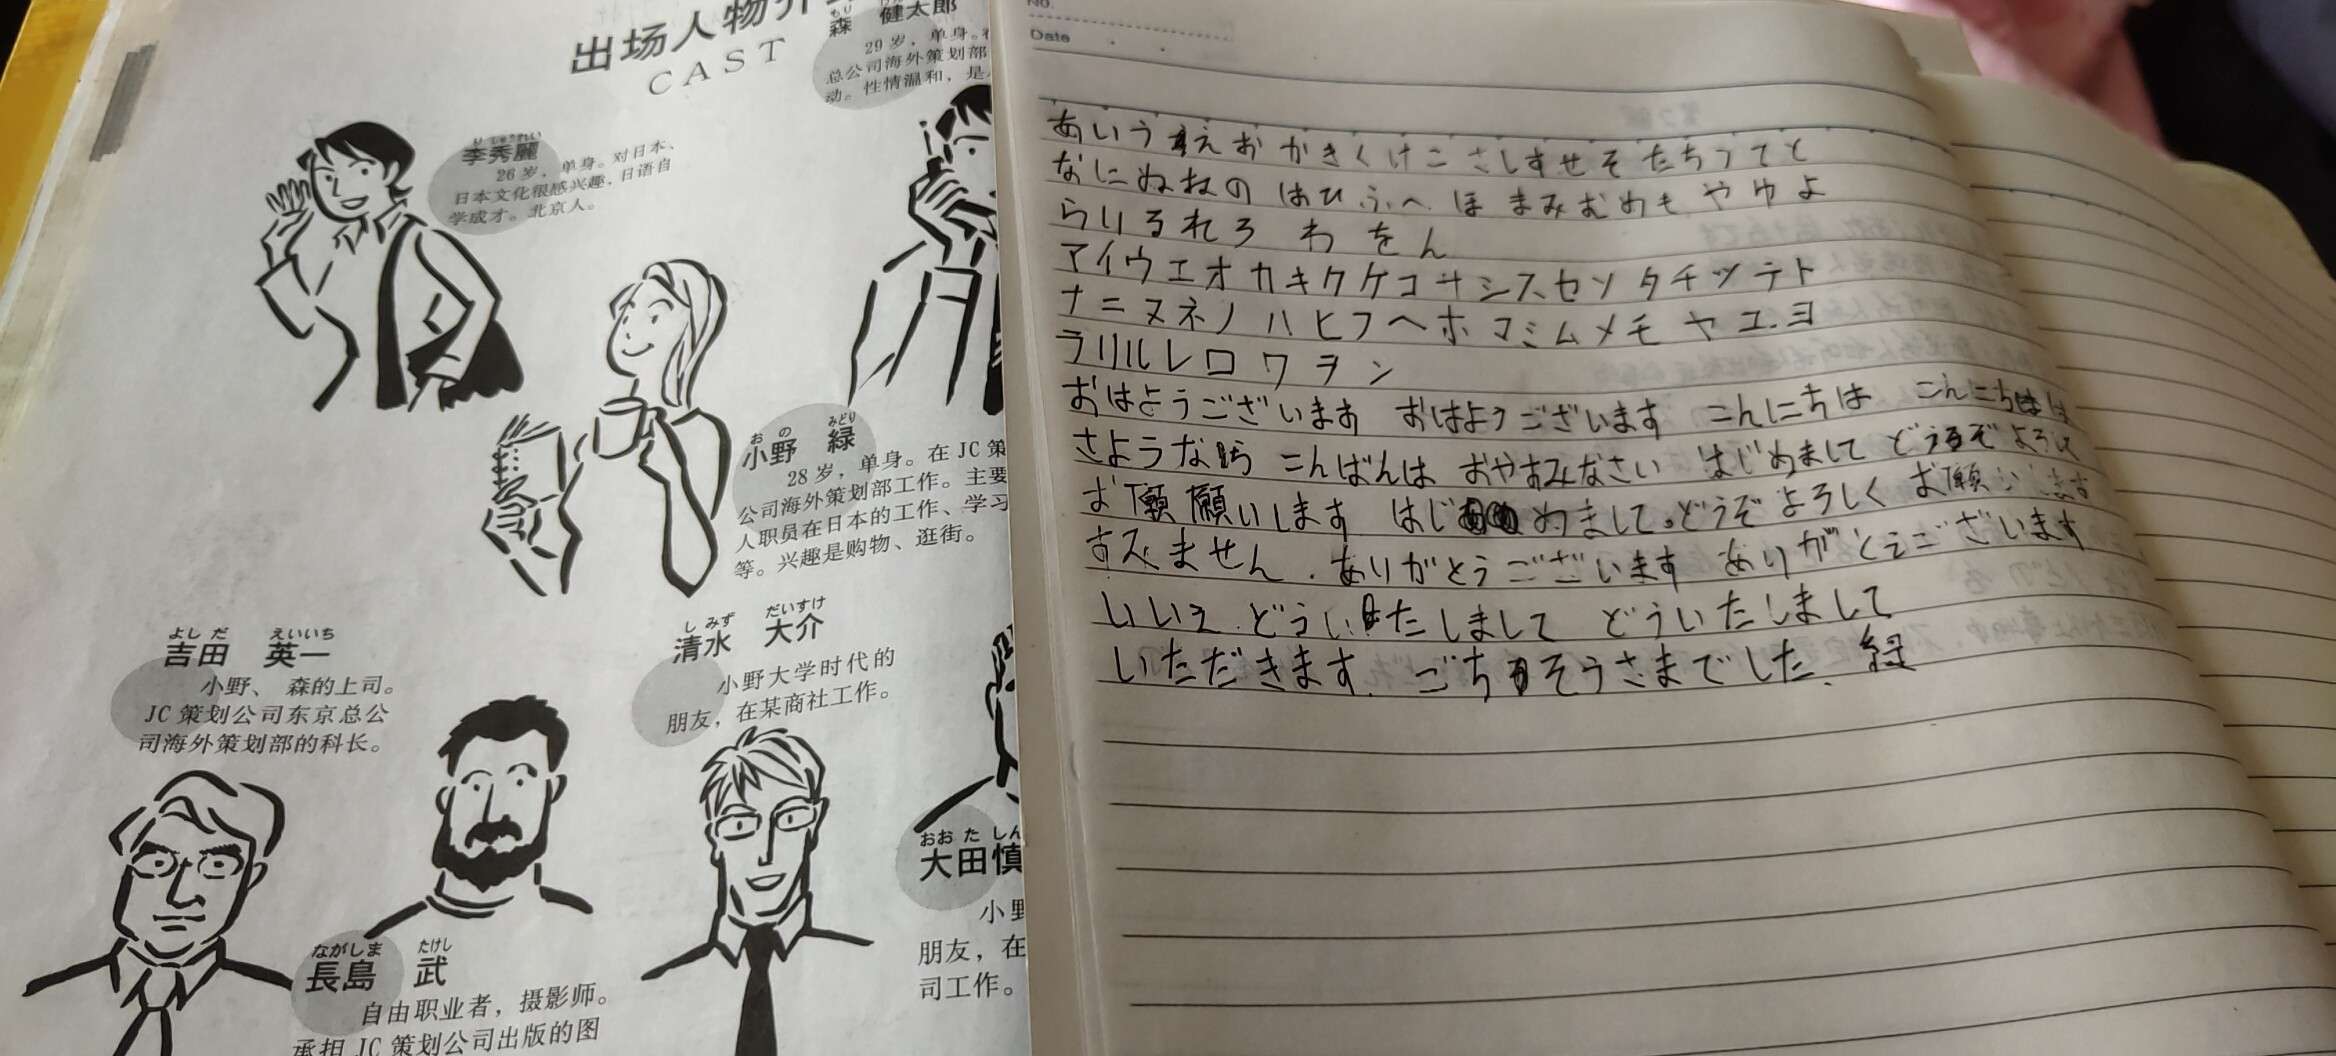 出场人物介
CAST
森 健太郎
29岁，单身。
总公司海外策划部
动。性情温和，是
りしゅうれい
李秀麗
26岁，单身。对日本、
日本文化很感兴趣，日语自
学成才。北京人。
おの みどり
小野 緑
28岁，单身。在JC策
公司海外策划部工作。主要
人职员在日本的工作、学习
等。兴趣是购物、逛街。
よしだ えいいち
吉田 英一
小野、森的上司。
JC策划公司东京总公
司海外策划部的科长。
しみず だいすけ
清水 大介
小野大学时代的
朋友，在某商社工作。
おおた しん
大田慎
小野
朋友，在
司工作。
ながしま たけし
長島 武
自由职业者，摄影师。
承担JC策划公司出版的图
No.
Date
あいうえお かきくけこ さしすせそ たちつてと
なにぬねの はひふへほ まみむめも やゆよ
らりるれろ わ を ん
アイウエオ カキクケコ サシスセソ タチツテト
ナニヌネノ ハヒフヘホ マミムメモ ヤユヨ
ラリルレロ ワ ヲ ン
おはようございます おはようございます こんにちは こんにちは
さようなら こんばんは おやすみなさい はじめまして どうぞ よろしく
お願 願いします はじめまして。どうぞ よろしく お願いします
すみません. ありがとうございます ありがとうございます
いいえ. どういたしまして どういたしまして
いただきます. ごちそうさまでした. 緑